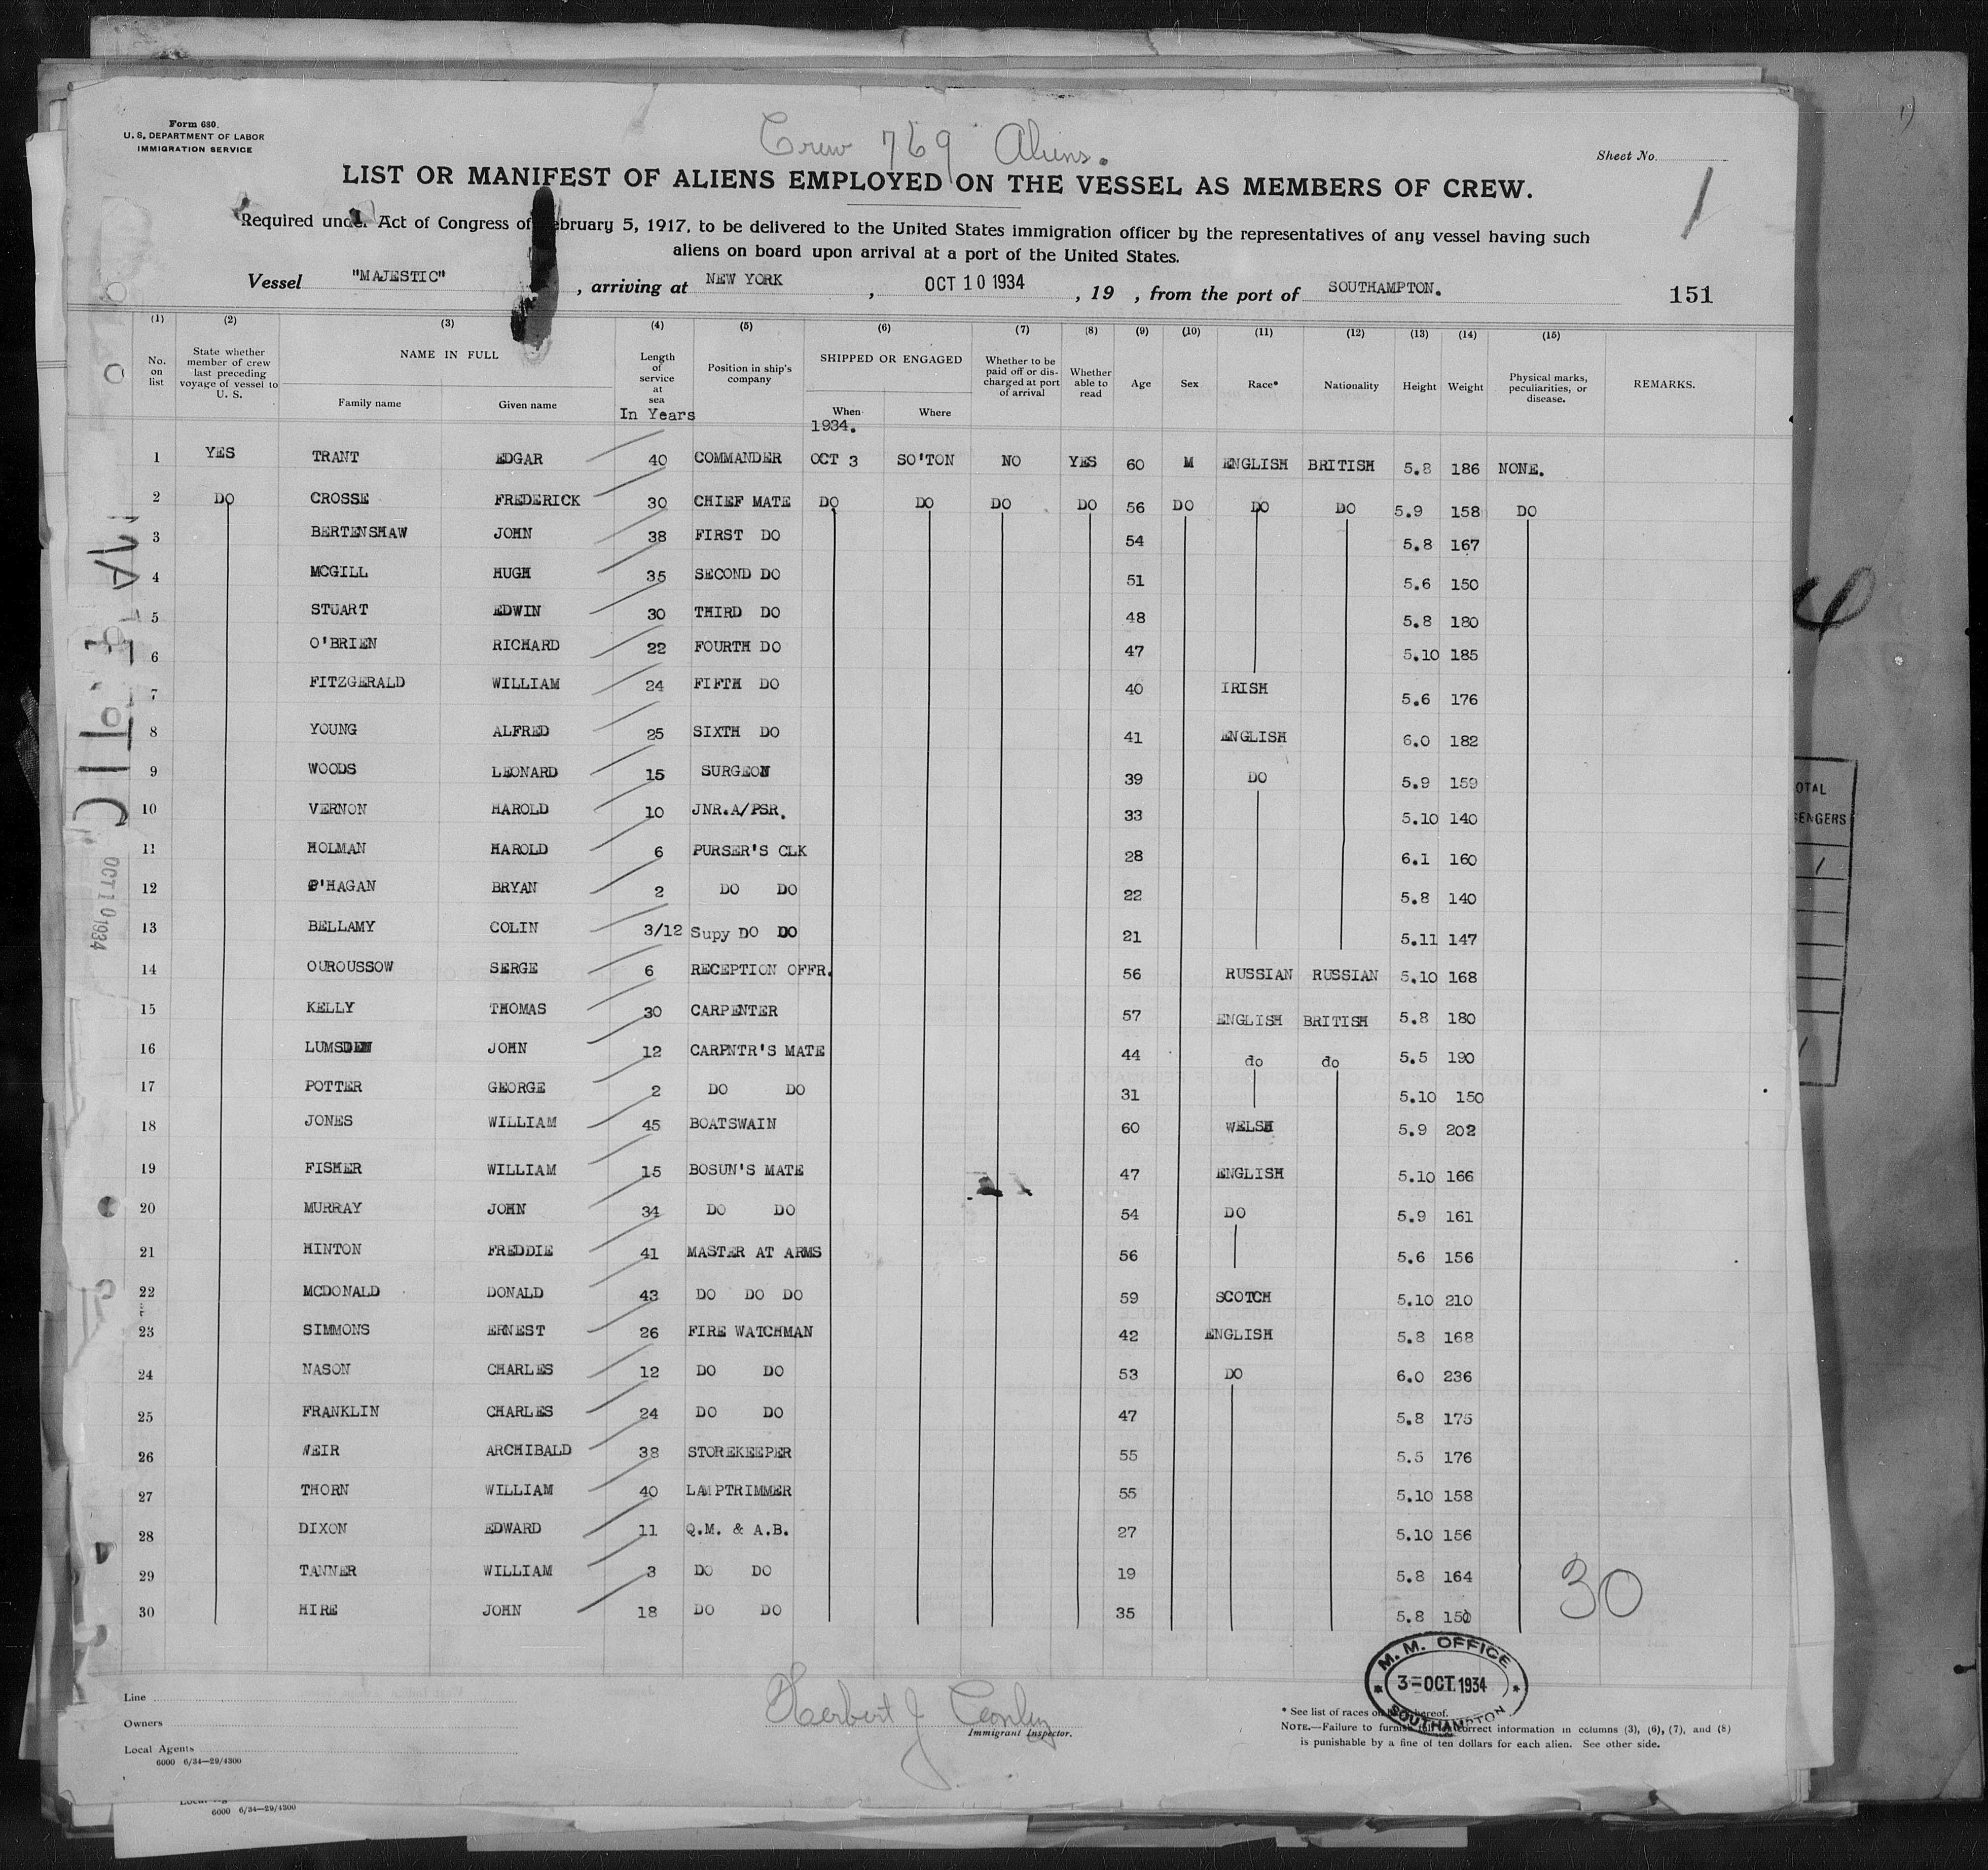 Form 680.
U. S. DEPARTMENT OF LABOR
IMMIGRATION SERVICE
Crew 769 Aliens.
Sheet No.
1
LIST OR MANIFEST OF ALIENS EMPLOYED ON THE VESSEL AS MEMBERS OF CREW.
Required under Act of Congress of February 5, 1917, to be delivered to the United States immigration officer by the representatives of any vessel having such
aliens on board upon arrival at a port of the United States.
Vessel "MAJESTIC" , arriving at NEW YORK , OCT 10 1934 , 19 , from the port of SOUTHAMPTON. 151
(1) (2) (3) (4) (5) (6) (7) (8) (9) (10) (11) (12) (13) (14) (15)
No. on list State whether member of crew last preceding voyage of vessel to U. S. NAME IN FULL Family name Given name Length of service at sea In Years Position in ship's company SHIPPED OR ENGAGED When 1934. Where Whether to be paid off or discharged at port of arrival Whether able to read Age Sex Race* Nationality Height Weight Physical marks, peculiarities, or disease. REMARKS.
1 YES TRANT EDGAR 40 COMMANDER OCT 3 SO'TON NO YES 60 M ENGLISH BRITISH 5.8 186 NONE.
2 DO CROSSE FREDERICK 30 CHIEF MATE DO DO DO DO 56 DO DO DO 5.9 158 DO
3 BERTENSHAW JOHN 38 FIRST DO 54 5.8 167
4 MCGILL HUGH 35 SECOND DO 51 5.6 150
5 STUART EDWIN 30 THIRD DO 48 5.8 180
6 O'BRIEN RICHARD 22 FOURTH DO 47 5.10 185
7 FITZGERALD WILLIAM 24 FIFTH DO 40 IRISH 5.6 176
8 YOUNG ALFRED 25 SIXTH DO 41 ENGLISH 6.0 182
9 WOODS LEONARD 15 SURGEON 39 DO 5.9 159
10 VERNON HAROLD 10 JNR.A/PSR. 33 5.10 140
11 HOLMAN HAROLD 6 PURSER'S CLK 28 6.1 160
12 O'HAGAN BRYAN 2 DO DO 22 5.8 140
13 BELLAMY COLIN 3/12 Supy DO DO 21 5.11 147
14 OUROUSSOW SERGE 6 RECEPTION OFFR. 56 RUSSIAN RUSSIAN 5.10 168
15 KELLY THOMAS 30 CARPENTER 57 ENGLISH BRITISH 5.8 180
16 LUMSDEN JOHN 12 CARPNTR'S MATE 44 do do 5.5 190
17 POTTER GEORGE 2 DO DO 31 5.10 150
18 JONES WILLIAM 45 BOATSWAIN 60 WELSH 5.9 202
19 FISHER WILLIAM 15 BOSUN'S MATE 47 ENGLISH 5.10 166
20 MURRAY JOHN 34 DO DO 54 DO 5.9 161
21 HINTON FREDDIE 41 MASTER AT ARMS 56 5.6 156
22 MCDONALD DONALD 43 DO DO DO 59 SCOTCH 5.10 210
23 SIMMONS ERNEST 26 FIRE WATCHMAN 42 ENGLISH 5.8 168
24 NASON CHARLES 12 DO DO 53 DO 6.0 236
25 FRANKLIN CHARLES 24 DO DO 47 5.8 175
26 WEIR ARCHIBALD 38 STOREKEEPER 55 5.5 176
27 THORN WILLIAM 40 LAMPTRIMMER 55 5.10 158
28 DIXON EDWARD 11 Q.M. & A.B. 27 5.10 156
29 TANNER WILLIAM 3 DO DO 19 5.8 164
30 HIRE JOHN 18 DO DO 35 5.8 150
30
M. M. OFFICE
3-OCT.1934
SOUTHAMPTON
Line
Owners
Local Agents
6000 6/34—29/4300
Herbert J
Immigrant Inspector.
* See list of races on hereof.
NOTE.—Failure to furnish correct information in columns (3), (6), (7), and (8)
is punishable by a fine of ten dollars for each alien. See other side.
6000 6/34—29/4300
OCT 10 1934